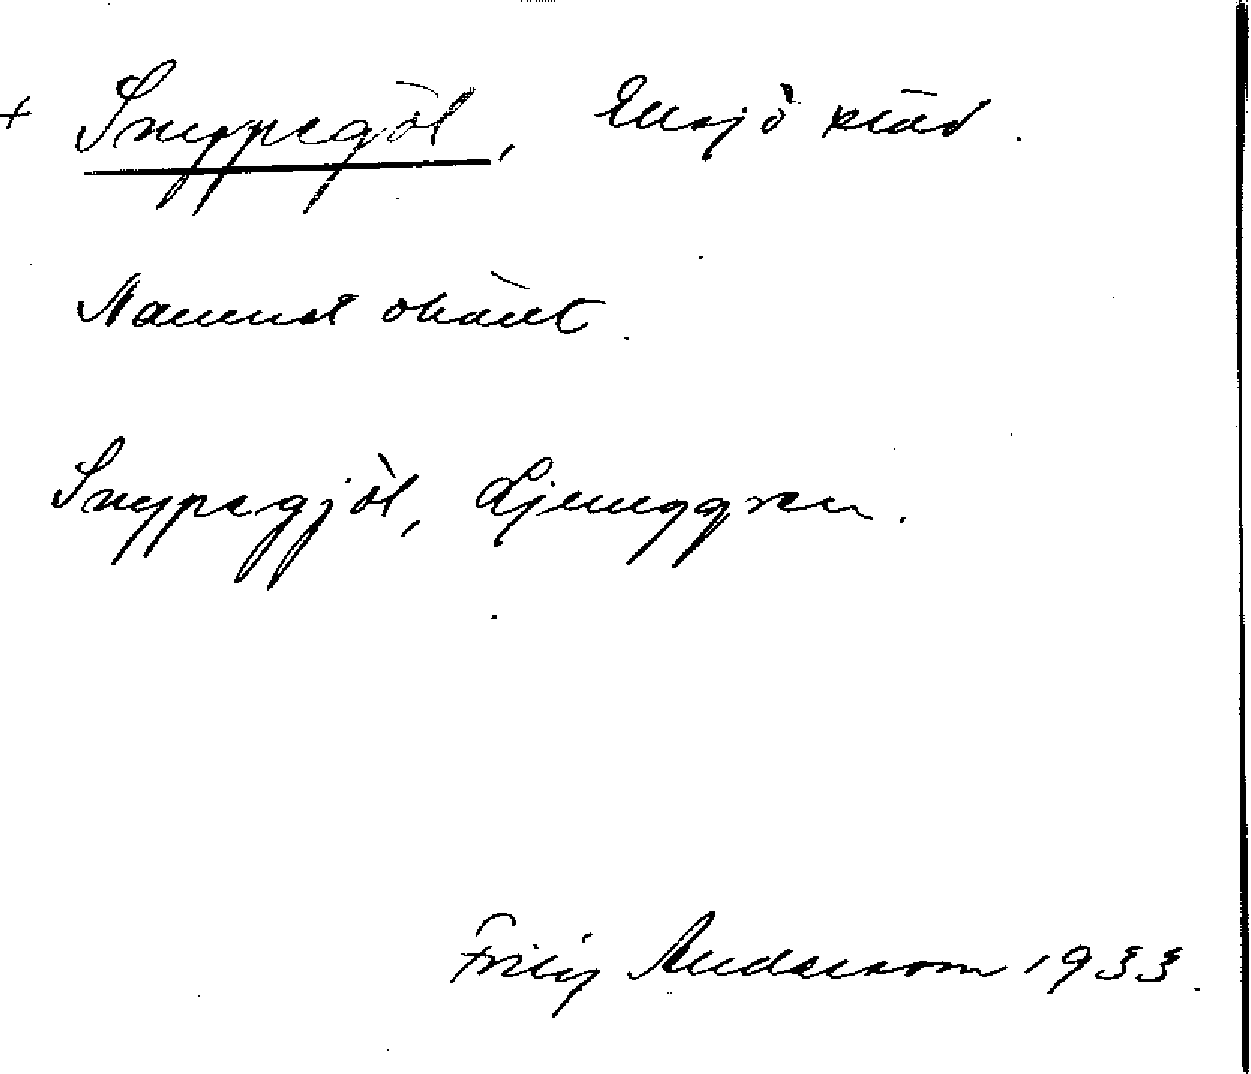 + Snypegöl, Eksjö stad.
Namnet okänt.
Snypegjöl, Ljunggren.
Filip Andersson 1933.